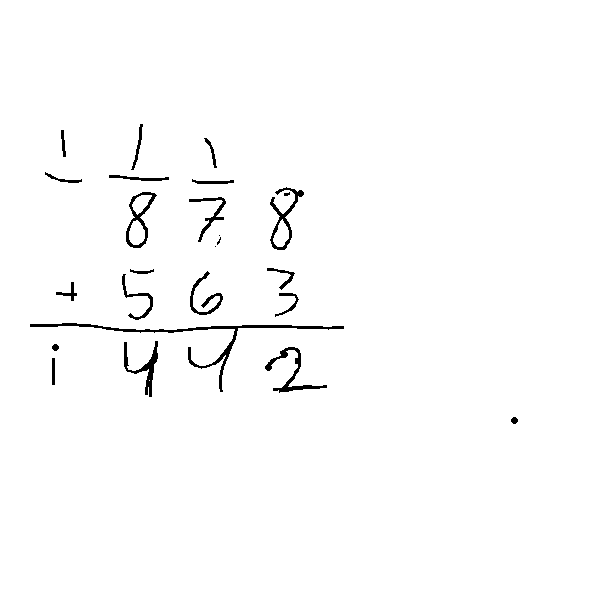 1 1 1
8 7 8
+ 5 6 3
1 4 4 2